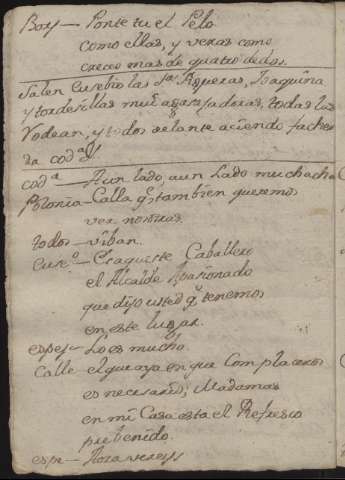 Bors – Ponte tu el Pelo
como ellas, y veras como
crece mas de quatro dedos.
Salen Eusebio las Sras Figueras, Joaquina
y tordesillas mui agasajadoras, todas las
Rodean, y todos delante aciendo
cod.a
cod.a – Aun lado, aun Lado muchacha
Polonia – Calla q.e tambien queremos
ver nosotras.
todos – viban.
Euse.o – Es aqueste Caballero
el Alcalde Apasionado
que dijo usted q.e tenemos
en este lugar.
espej – Lo es mucho.
Calle el que aya en que Complaceros
es necesario; Madamas
en mi Casa esta el Refresco
prebenido.
espe – Aora vereis